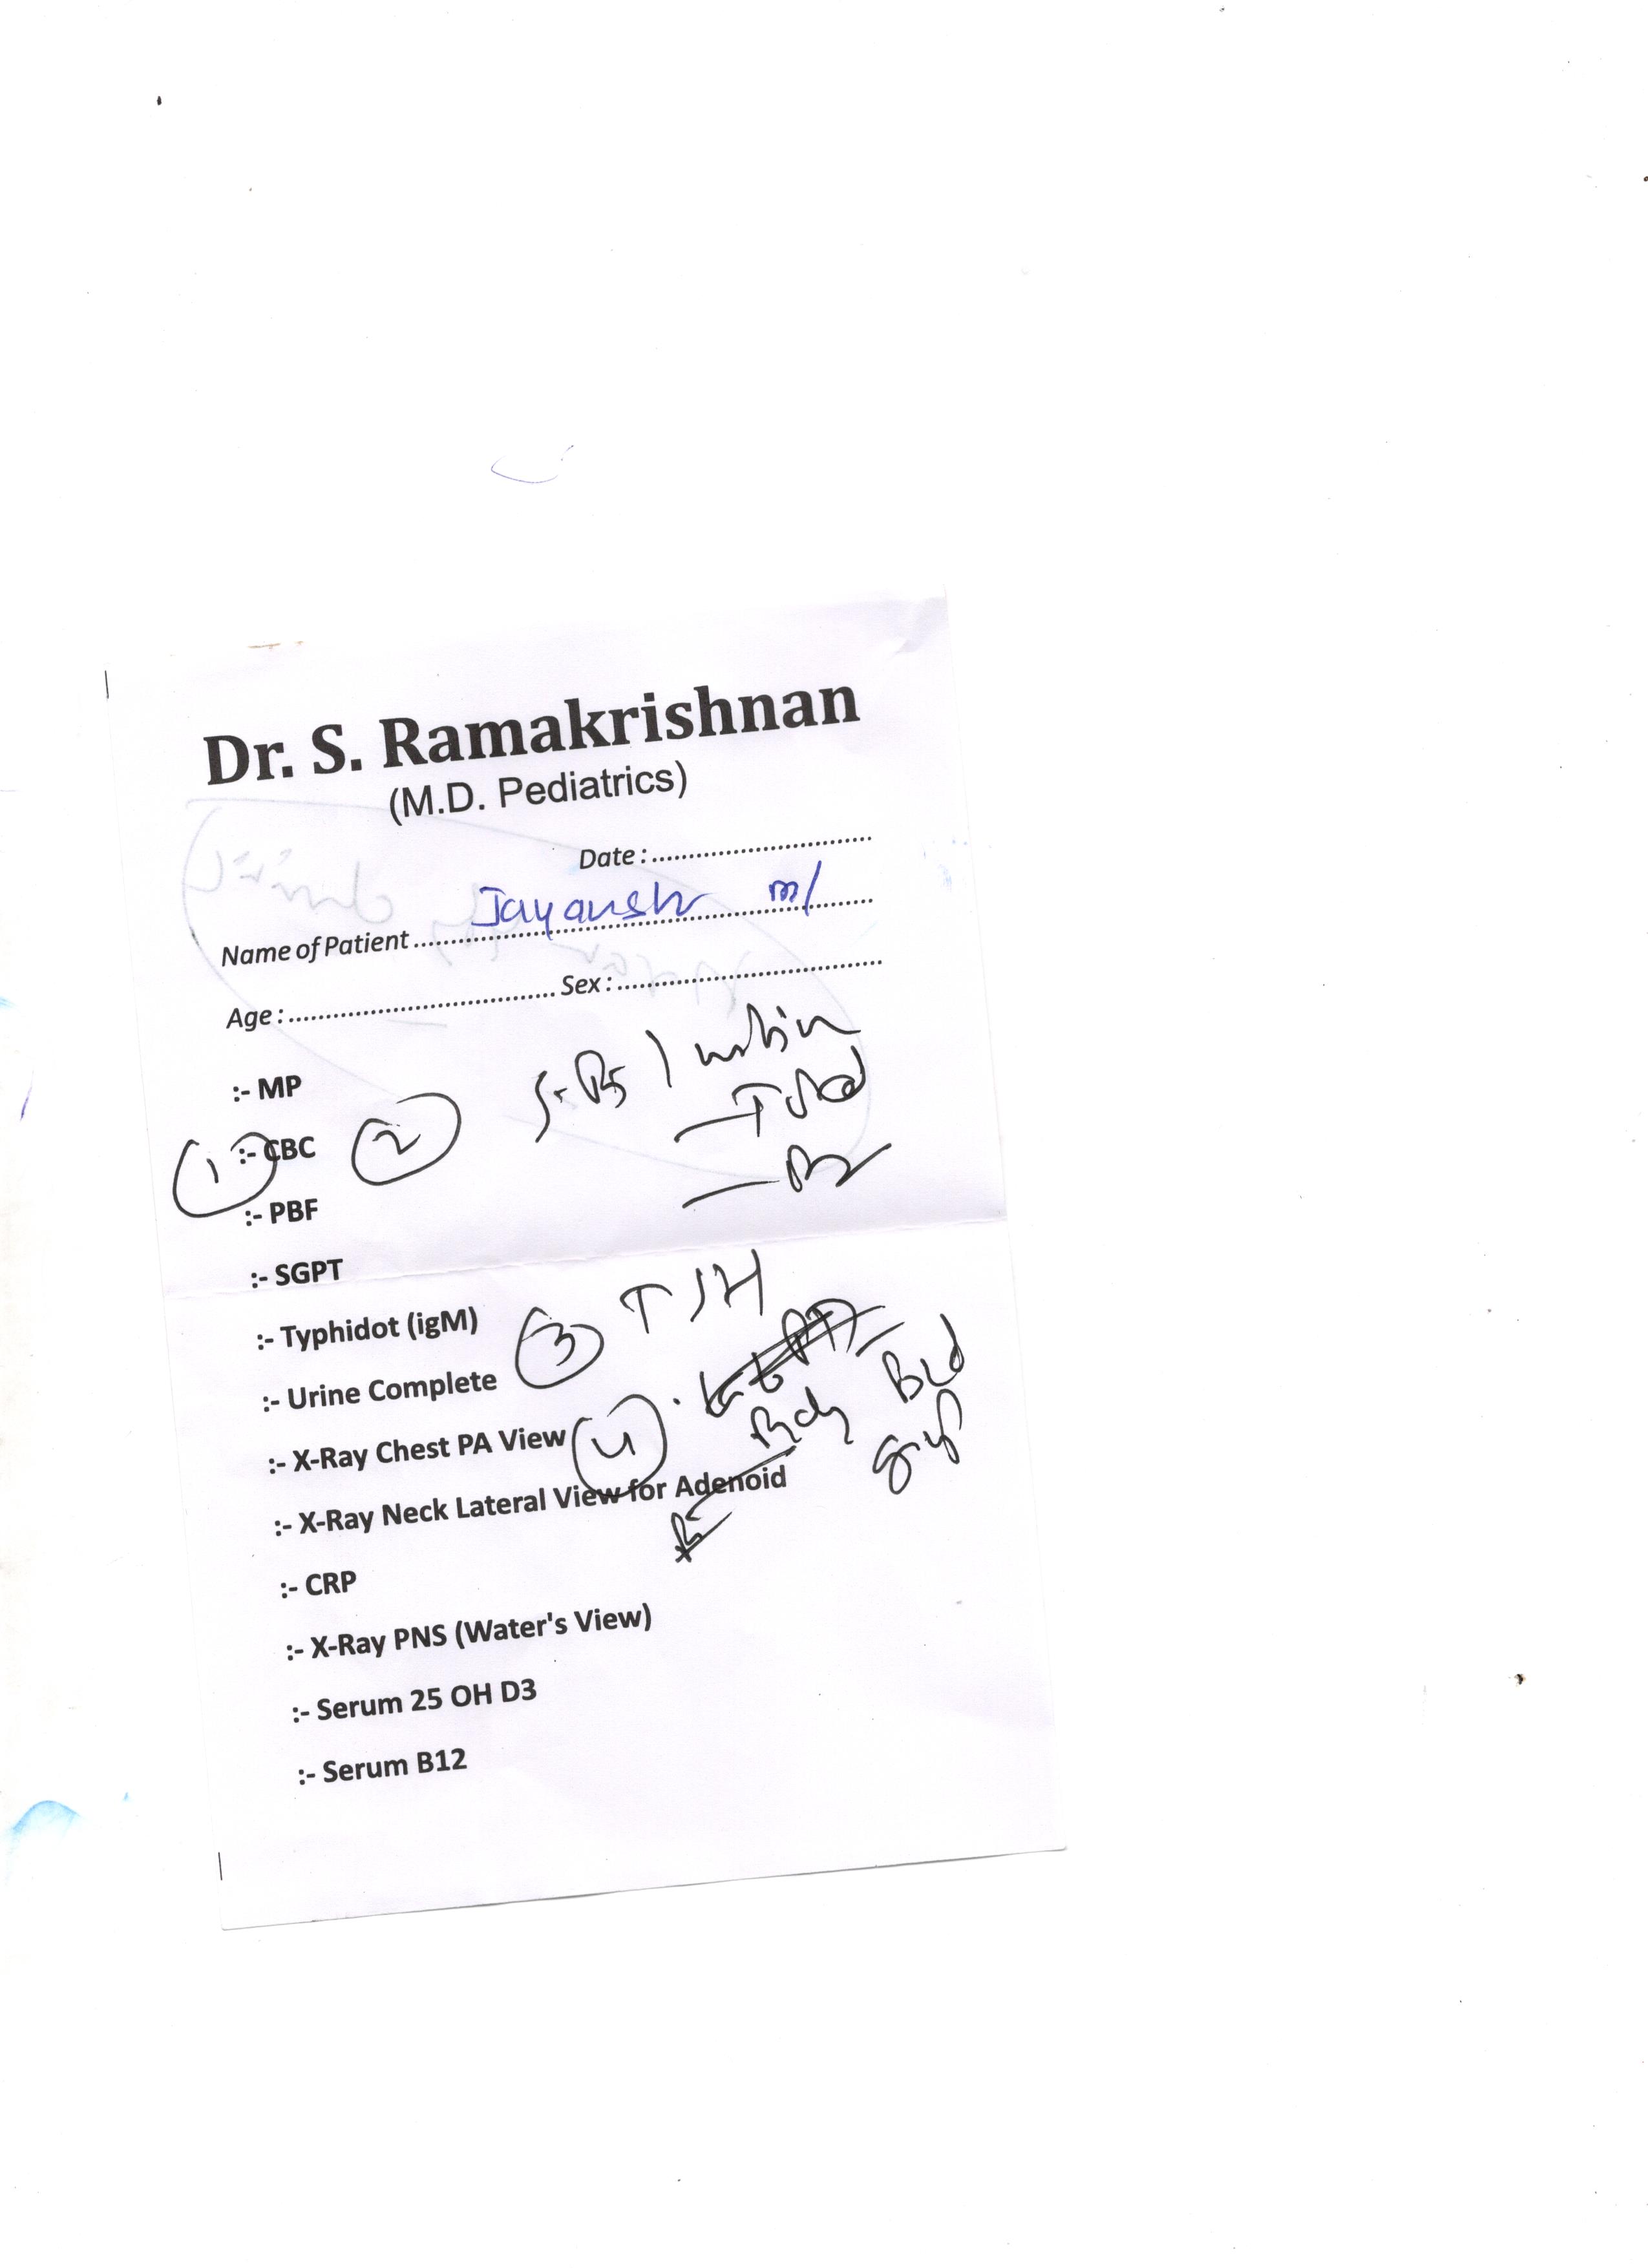 Dr. S. Ramakrishnan
(M.D. Pediatrics)
Date :
Name of Patient Jayansh m/
Age : Sex :
:- MP
1 :- CBC
2
:- PBF
:- SGPT
3 TSH
:- Typhidot (igM)
:- Urine Complete
4 Bld
:- X-Ray Chest PA View
:- X-Ray Neck Lateral View for Adenoid
:- CRP
:- X-Ray PNS (Water's View)
:- Serum 25 OH D3
:- Serum B12